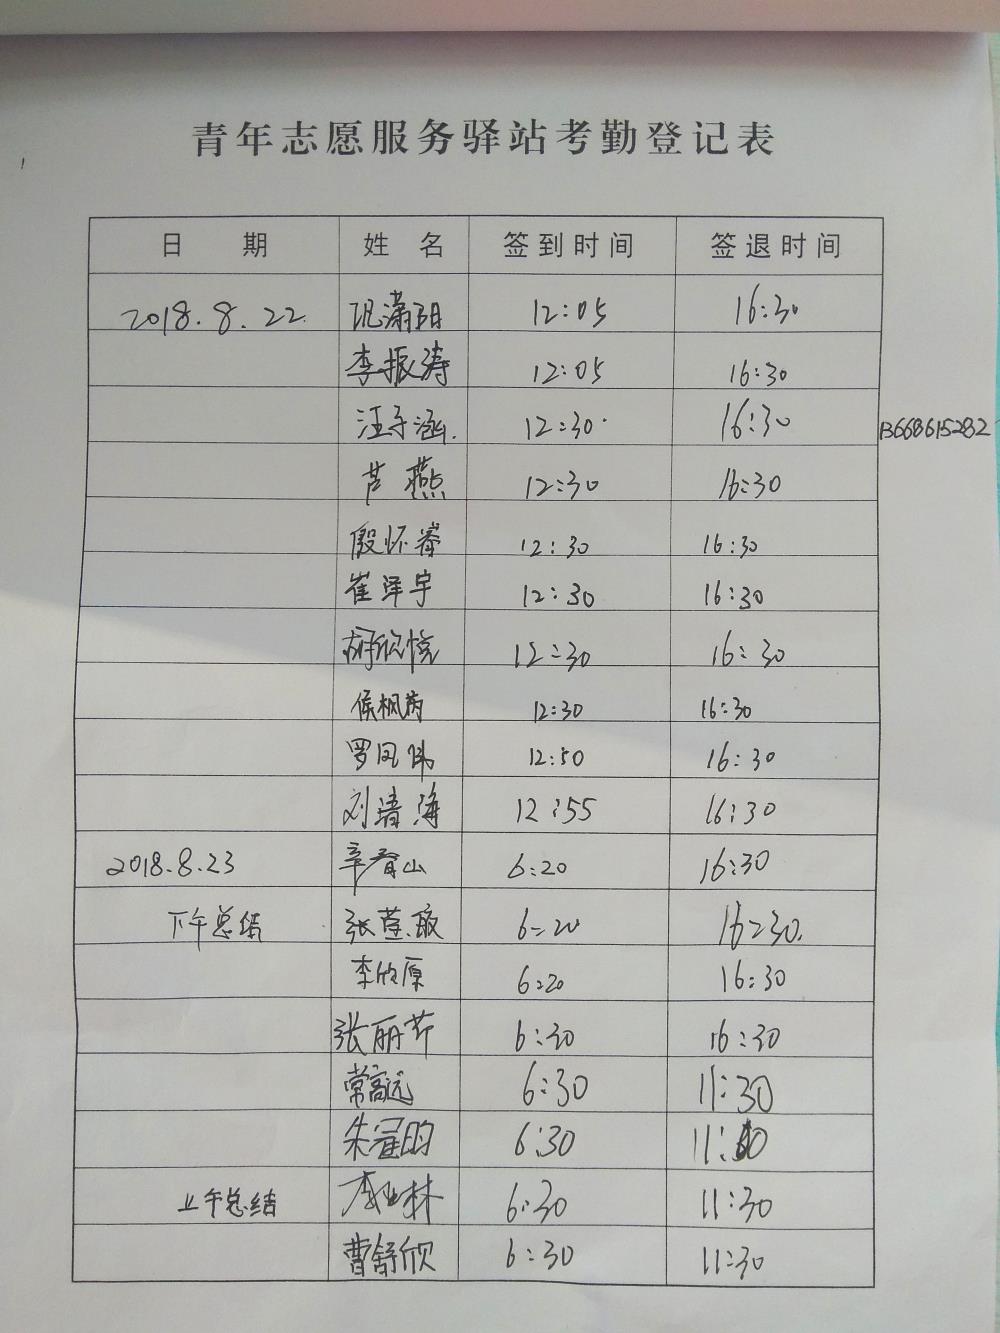 青年志愿服务驿站考勤登记表
日 期 姓 名 签到时间 签退时间
2018.8.22 潇阳 12:05 16:30
李振涛 12:05 16:30
汪子涵. 12:30 16:30 13668615282
芦燕 12:30 16:30
殷怀 12:30 16:30
崔泽宇 12:30 16:30
胡欣悦 12:30 16:30
侯枫芮 12:30 16:30
罗凤伟 12:50 16:30
刘清海 12:55 16:30
2018.8.23 辛春山 6:20 16:30
下午总结 张莲敏 6:20 16:30.
李欣原 6:20 16:30
张丽芹 6:30 16:30
常高远 6:30 11:30
朱冠昀 6:30 11:30
上午总结 李业林 6:30 11:30
曹舒欣 6:30 11:30